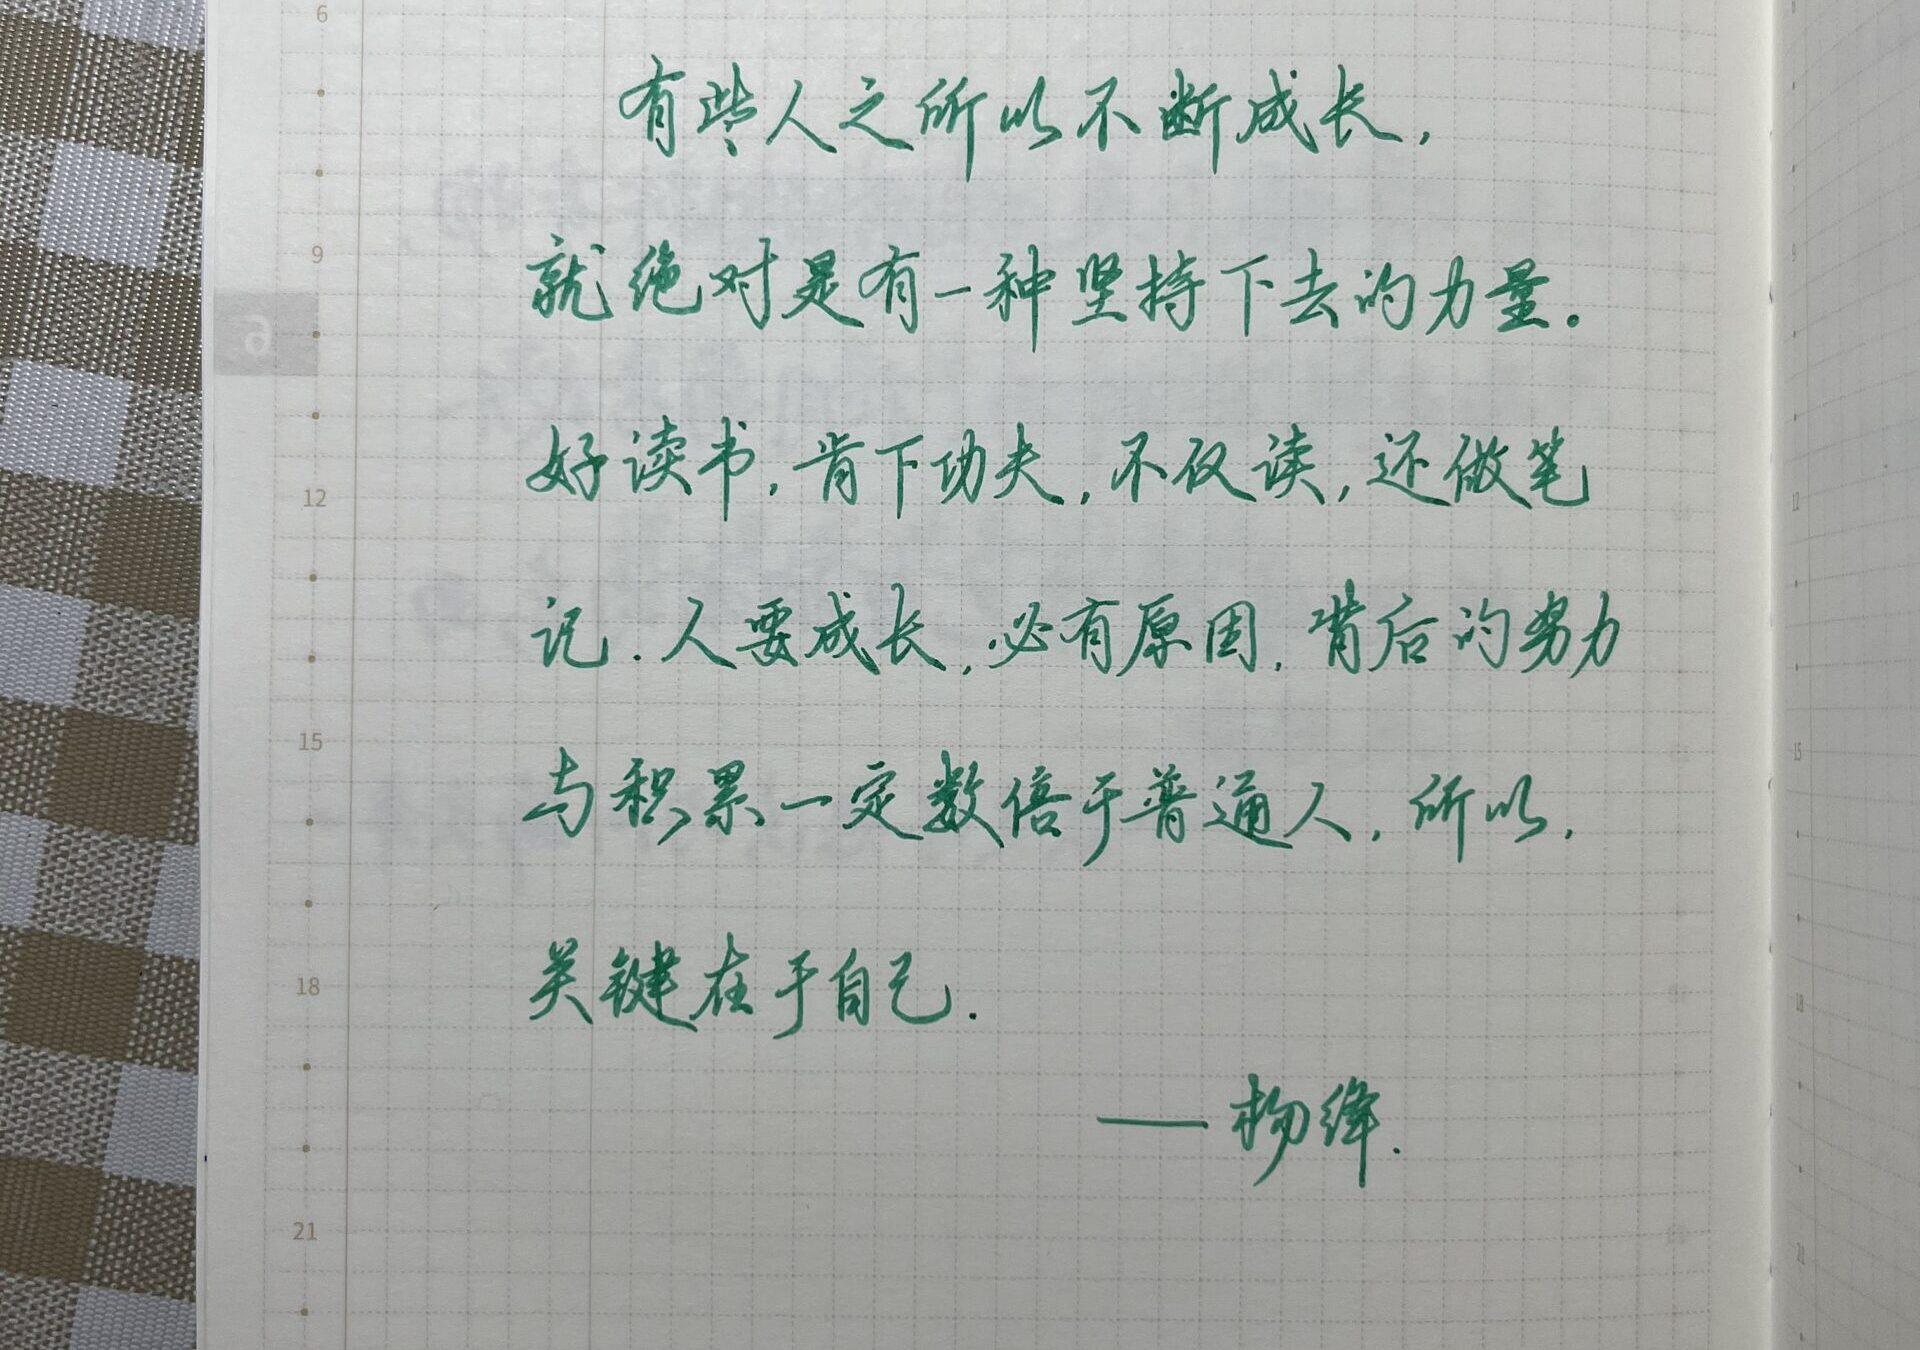 6
有些人之所以不断成长，
9
就绝对是有一种坚持下去的力量。
6
好读书，肯下功夫，不仅读，还做笔
12
记．人要成长，必有原因，背后的努力
15
与积累一定数倍于普通人．所以，
18
关键在于自己．
——杨绛．
21